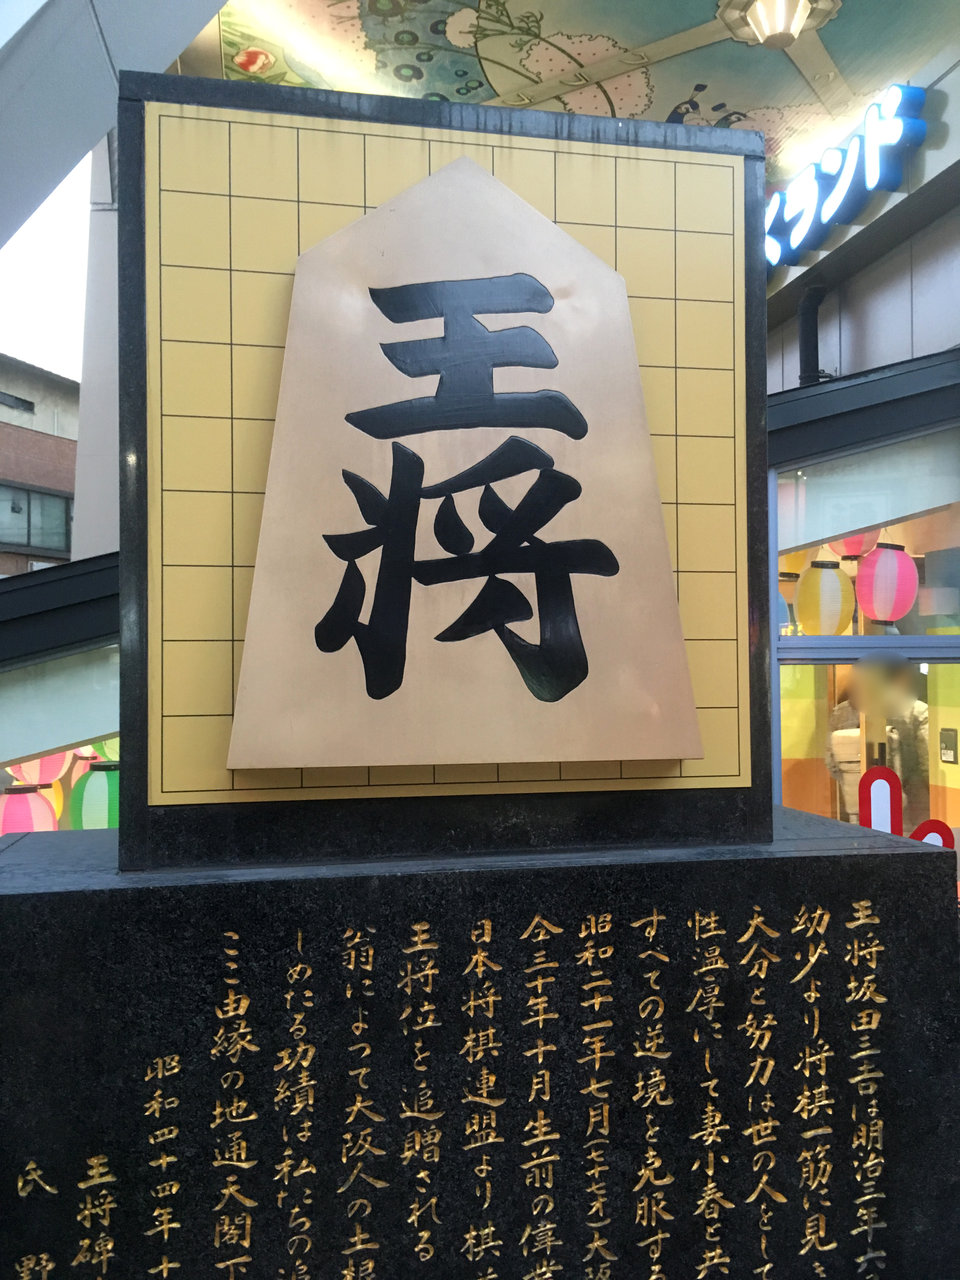 王将
ランド
王将坂田三吉は明治三年六
幼少より将棋一筋に見
天分と努力は世の人をして
性温厚にして妻小春と共
すべての逆境を克服する
昭和二十一年七月(七十七才)大阪
仝三十年十月生前の偉
日本将棋連盟より棋
王将位を追贈される
翁によって大阪人の土根
しめたる功績は私たちの追
ここ由縁の地通天閣下
昭和四十四年十
王将碑
氏野